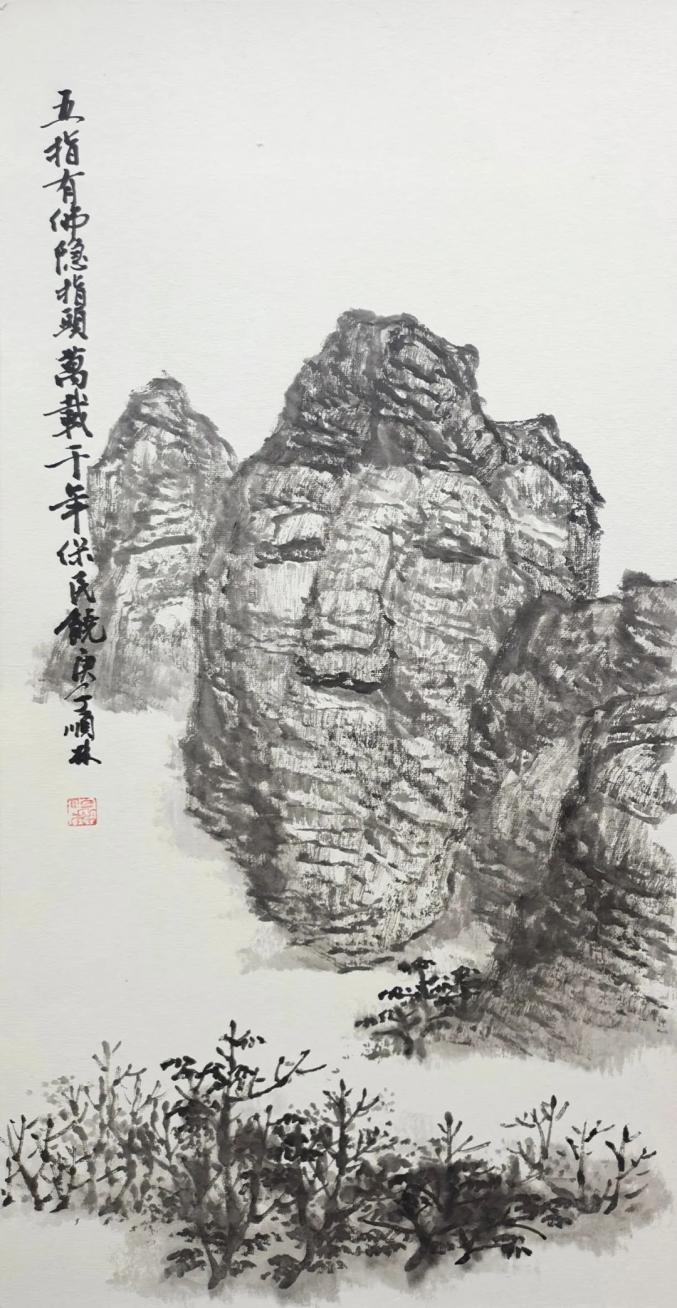 五指有佛隐指頭萬載千年保民饒庚子順林